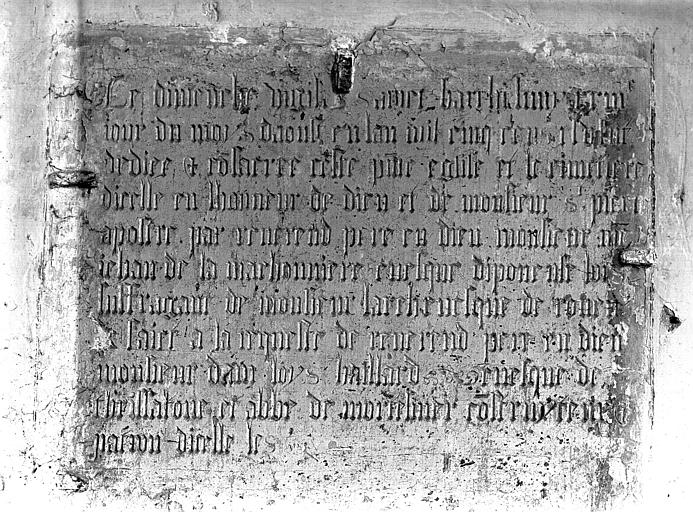 Le dimēche vigile s saīnet barthelemy xxiiiᵉ
iour du mois daoust en lan mil cinq cens
dediee & cōsacree ceste pn̄te eglise et le cimetiere
dicelle en lhonneur de dieu et de monsieur sᵗ pierre
apostre par reuerend pere en dieu monsieur
iehan de la machonniere euesque diponense
suffragant de monsieur larcheuesque de rouen
& faict a la requeste de reuerend pere en dieu
monsieur dam loys haillard euesque de
thessalone et abbe de mortemer cōseruateur
patron dicelle les